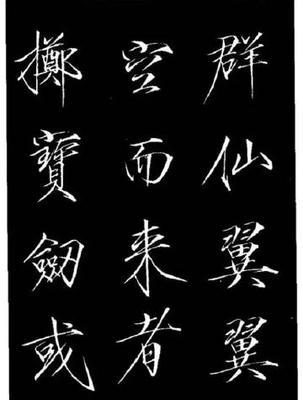 群仙翼翼
空而来者
擲寶劔或